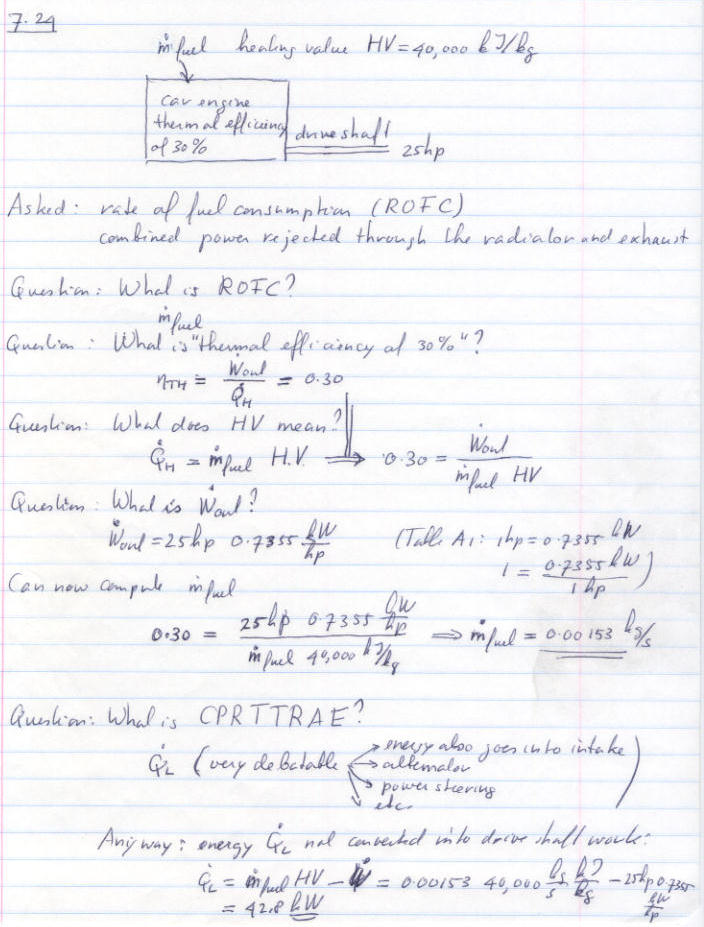 7.24
ṁfuel heating value HV = 40,000 kJ/kg
car engine
thermal efficiency
of 30%
driveshaft
25hp
Asked: rate of fuel consumption (ROFC)
combined power rejected through the radiator and exhaust
Question: What is ROFC?
ṁfuel
Question: What is "thermal efficiency of 30%"?
ηTH = Ẇout / Q̇H = 0.30
Question: What does HV mean?
Q̇H = ṁfuel H.V. ⟹ 0.30 = Ẇout / ṁfuel HV
Question: What is Ẇout?
Ẇout = 25hp 0.7355 kW/hp (Table A1: 1hp = 0.7355 kW
1 = 0.7355 kW / 1 hp)
Can now compute ṁfuel
0.30 = 25hp 0.7355 kW/hp / ṁfuel 40,000 kJ/kg ⟹ ṁfuel = 0.00153 kg/s
Question: What is CPRTTRAE?
Q̇L (very debatable → energy also goes into intake
→ alternator
→ power steering
→ etc.)
Anyway: energy Q̇L not converted into drive shaft work:
Q̇L = ṁfuel HV − Ẇ = 0.00153 40,000 kg/s kJ/kg − 25hp 0.7355 kW/hp
= 42.8 kW